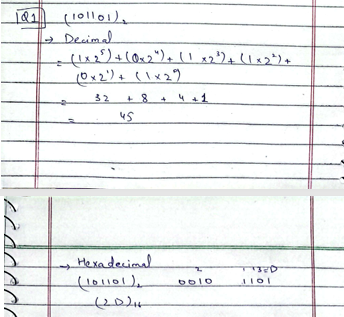 Q1 (101101)₂
→ Decimal
= (1×2⁵)+(0×2⁴)+(1×2³)+(1×2²)+
(0×2¹)+(1×2⁰)
= 32 + 8 + 4 + 1
= 45
→ Hexadecimal 2 13=D
(101101)₂ 0010 1101
(2D)₁₆